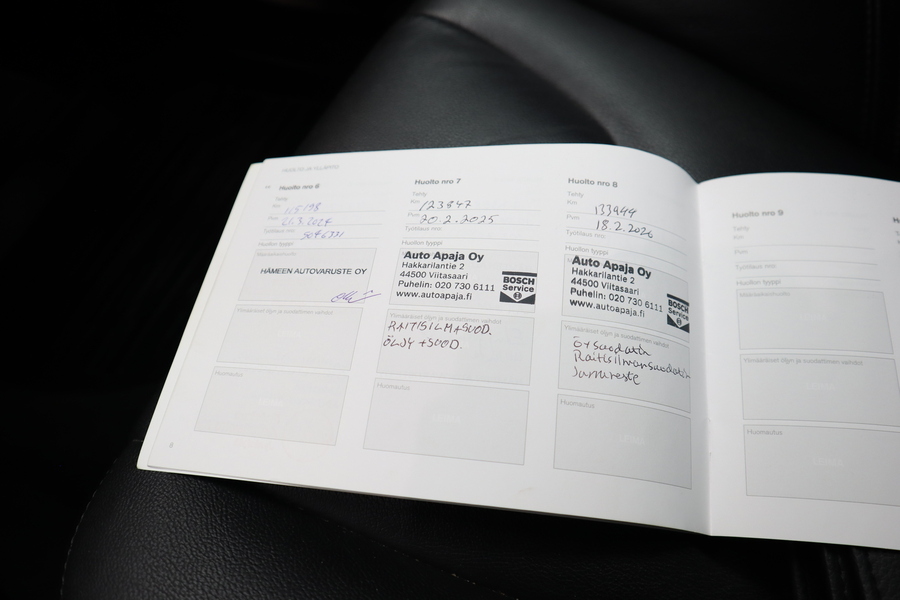 HUOLTO JA YLLÄPITO
Huolto nro 6
Tehty
Km 115198
Pvm 21.3.2024
Työtilaus nro: 5046331
Huollon tyyppi
HÄMEEN AUTOVARUSTE OY
Ylimääräiset öljyn ja suodattimen vaihdot
Huomautus
8
Huolto nro 7
Tehty
Km 123847
Pvm 20.2.2025
Työtilaus nro:
Huollon tyyppi
Auto Apaja Oy
Hakkarilantie 2
44500 Viitasaari
Puhelin: 020 730 6111
www.autoapaja.fi
BOSCH
Service
Ylimääräiset öljyn ja suodattimen vaihdot
RAITISILMASUOD.
ÖLJY +SUOD.
Huomautus
Huolto nro 8
Tehty
Km 133944
Pvm 18.2.2026
Työtilaus nro:
Huollon tyyppi
Auto Apaja Oy
Hakkarilantie 2
44500 Viitasaari
Puhelin: 020 730 6111
www.autoapaja.fi
BOSCH
Service
Ylimääräiset öljyn ja suodattimen vaihdot
Ö+Suodatin
Raitisilmansuodatin
Jarrureste
Huomautus
Huolto nro 9
Tehty
Km
Pvm
Työtilaus nro:
Huollon tyyppi
Ylimääräiset öljyn ja suodattimen vaihdot
Huomautus